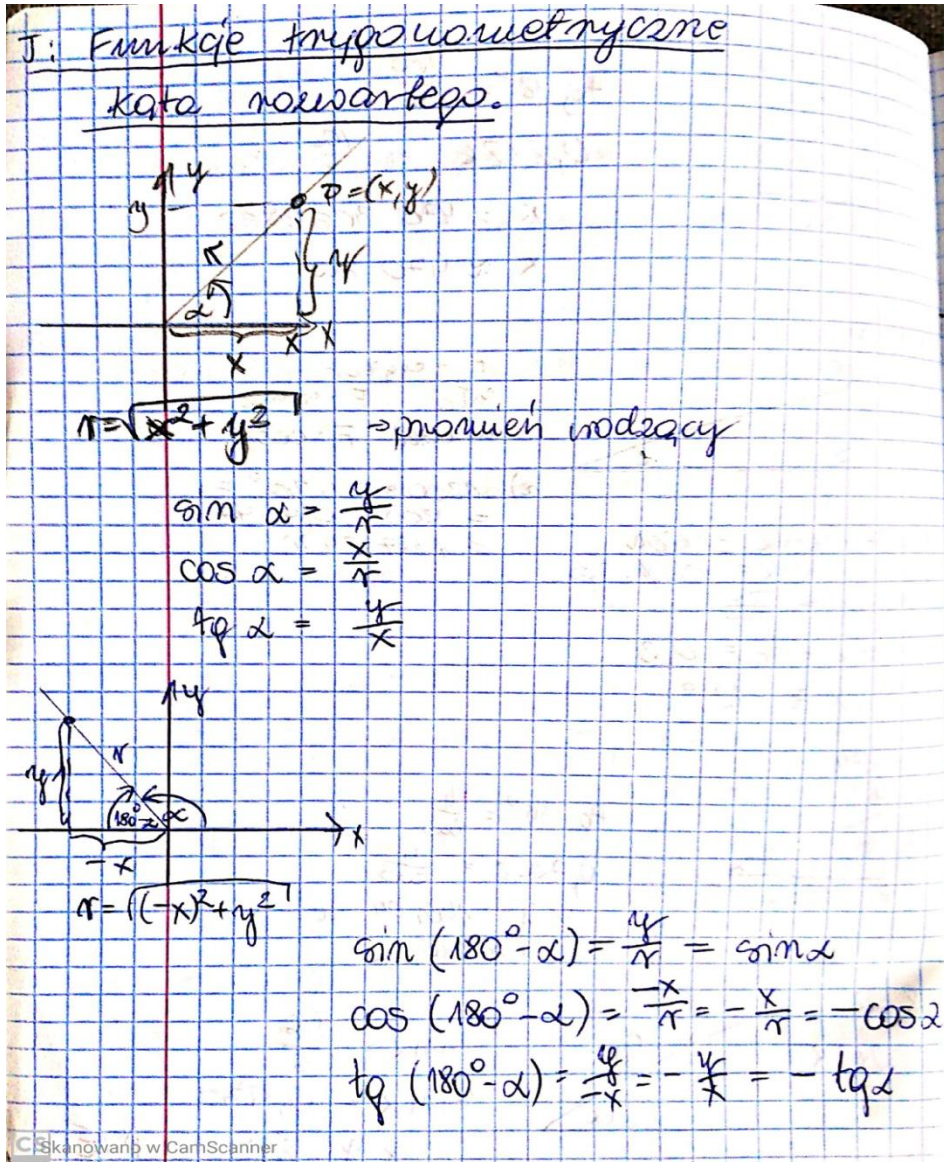 T: Funkcje trygonometryczne
kąta rozwartego.
y
y
P=(x,y)
r
y
α
x
x
x
r=√x²+y² →promień wodzący
sin α = y/r
cos α = x/r
tg α = y/x
y
r
y
180°-α
α
x
-x
r=√(-x)²+y²
sin (180°-α) = y/r = sinα
cos (180°-α) = -x/r = - x/r = -cosα
tg (180°-α) = y/-x = - y/x = - tgα
CS Skanowano w CamScanner